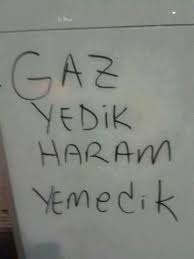 GAZ
YEDİK
HARAM
YEMEDİK